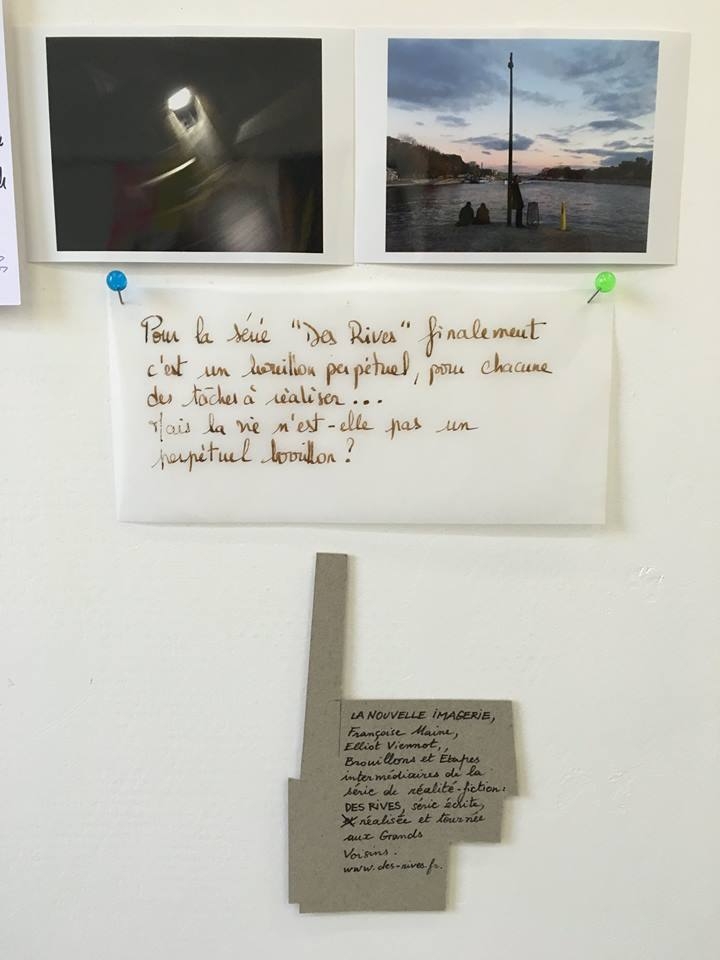 Pour la série "Des Rives" finalement
c'est un brouillon perpétuel, pour chacune
des tâches à réaliser...
Mais la vie n'est-elle pas un
perpétuel brouillon?
LA NOUVELLE IMAGERIE,
Françoise Maine,
Elliot Viennot,,
Brouillons et Etapes
intermédiaires de la
série de réalité-fiction:
DES RIVES, série écrite,
réalisée et tournée
aux Grands
Voisins.
www.des-rives.fr.